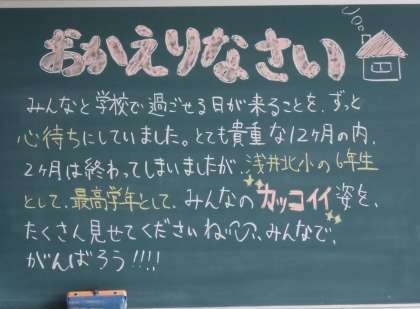 おかえりなさい
みんなと学校で過ごせる日が来ることを、ずっと
心待ちにしていました。とても貴重な12ヶ月の内、
2ヶ月は終わってしまいましたが、浅井北小の6年生
として、最高学年として、みんなのカッコイイ姿を、
たくさん見せてくださいね♡、みんなで、
がんばろう!!!!